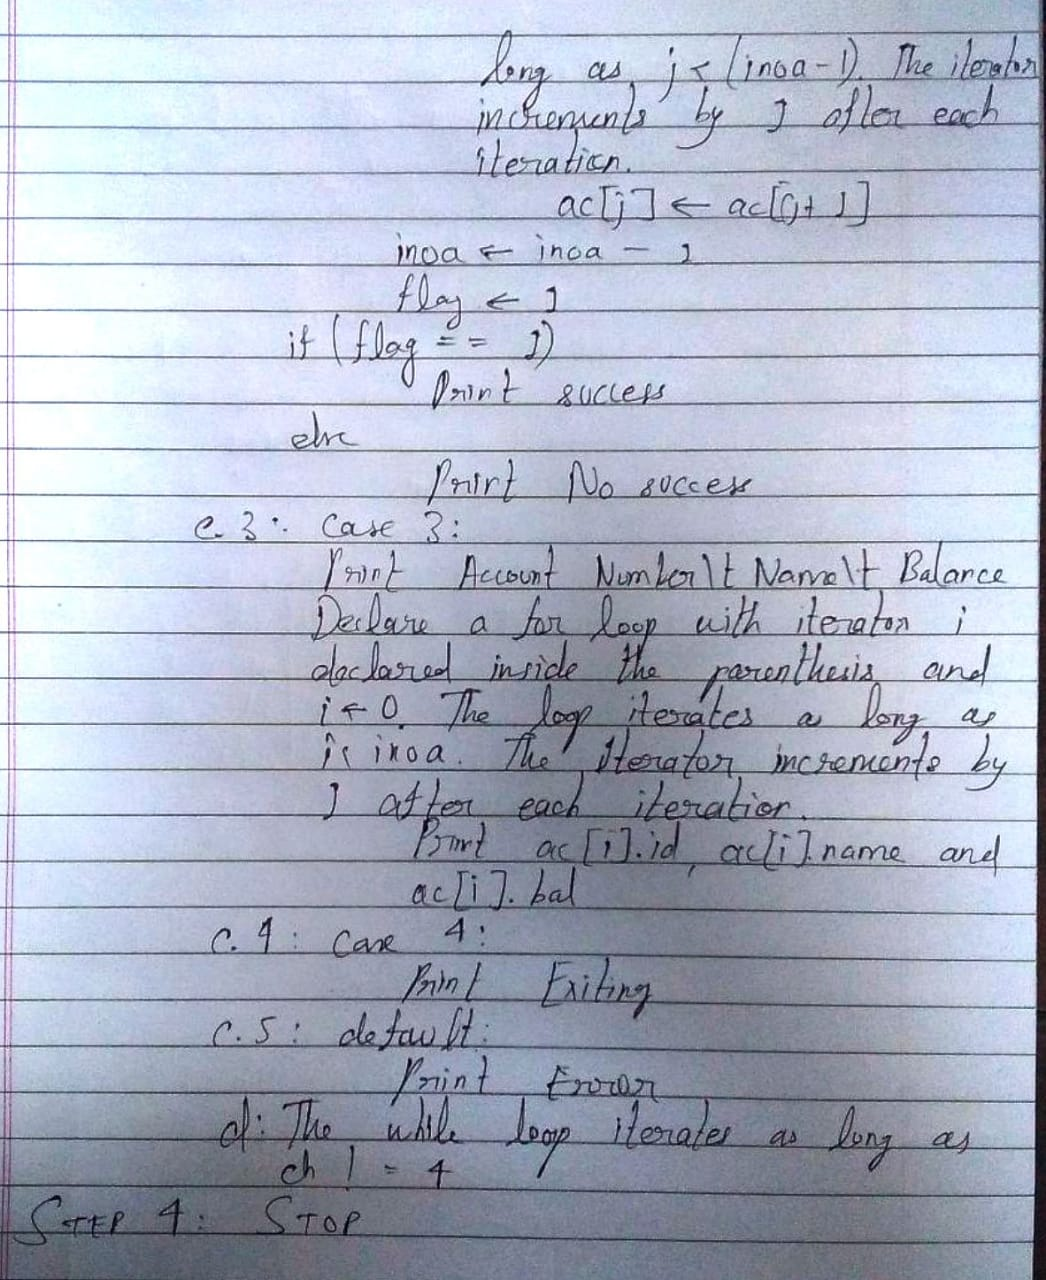 long as j < (inoa-1). The iterator
increments by 1 after each
iteration.
ac[j] ← ac[j+1]
inoa ← inoa - 1
flag ← 1
if (flag == 1)
Print success
else
Print No success
c.3: case 3:
Print Account Number\t Name\t Balance
Declare a for loop with iterator i
declared inside the parenthesis and
i ← 0. The loop iterates a long as
i< inoa. The Iterator increments by
1 after each iteration.
Print ac[i].id, ac[i].name and
ac[i].bal
c.4: case 4:
Print Exiting
c.5: default:
Print Error
d: The while loop iterates as long as
ch != 4
STEP 4: STOP